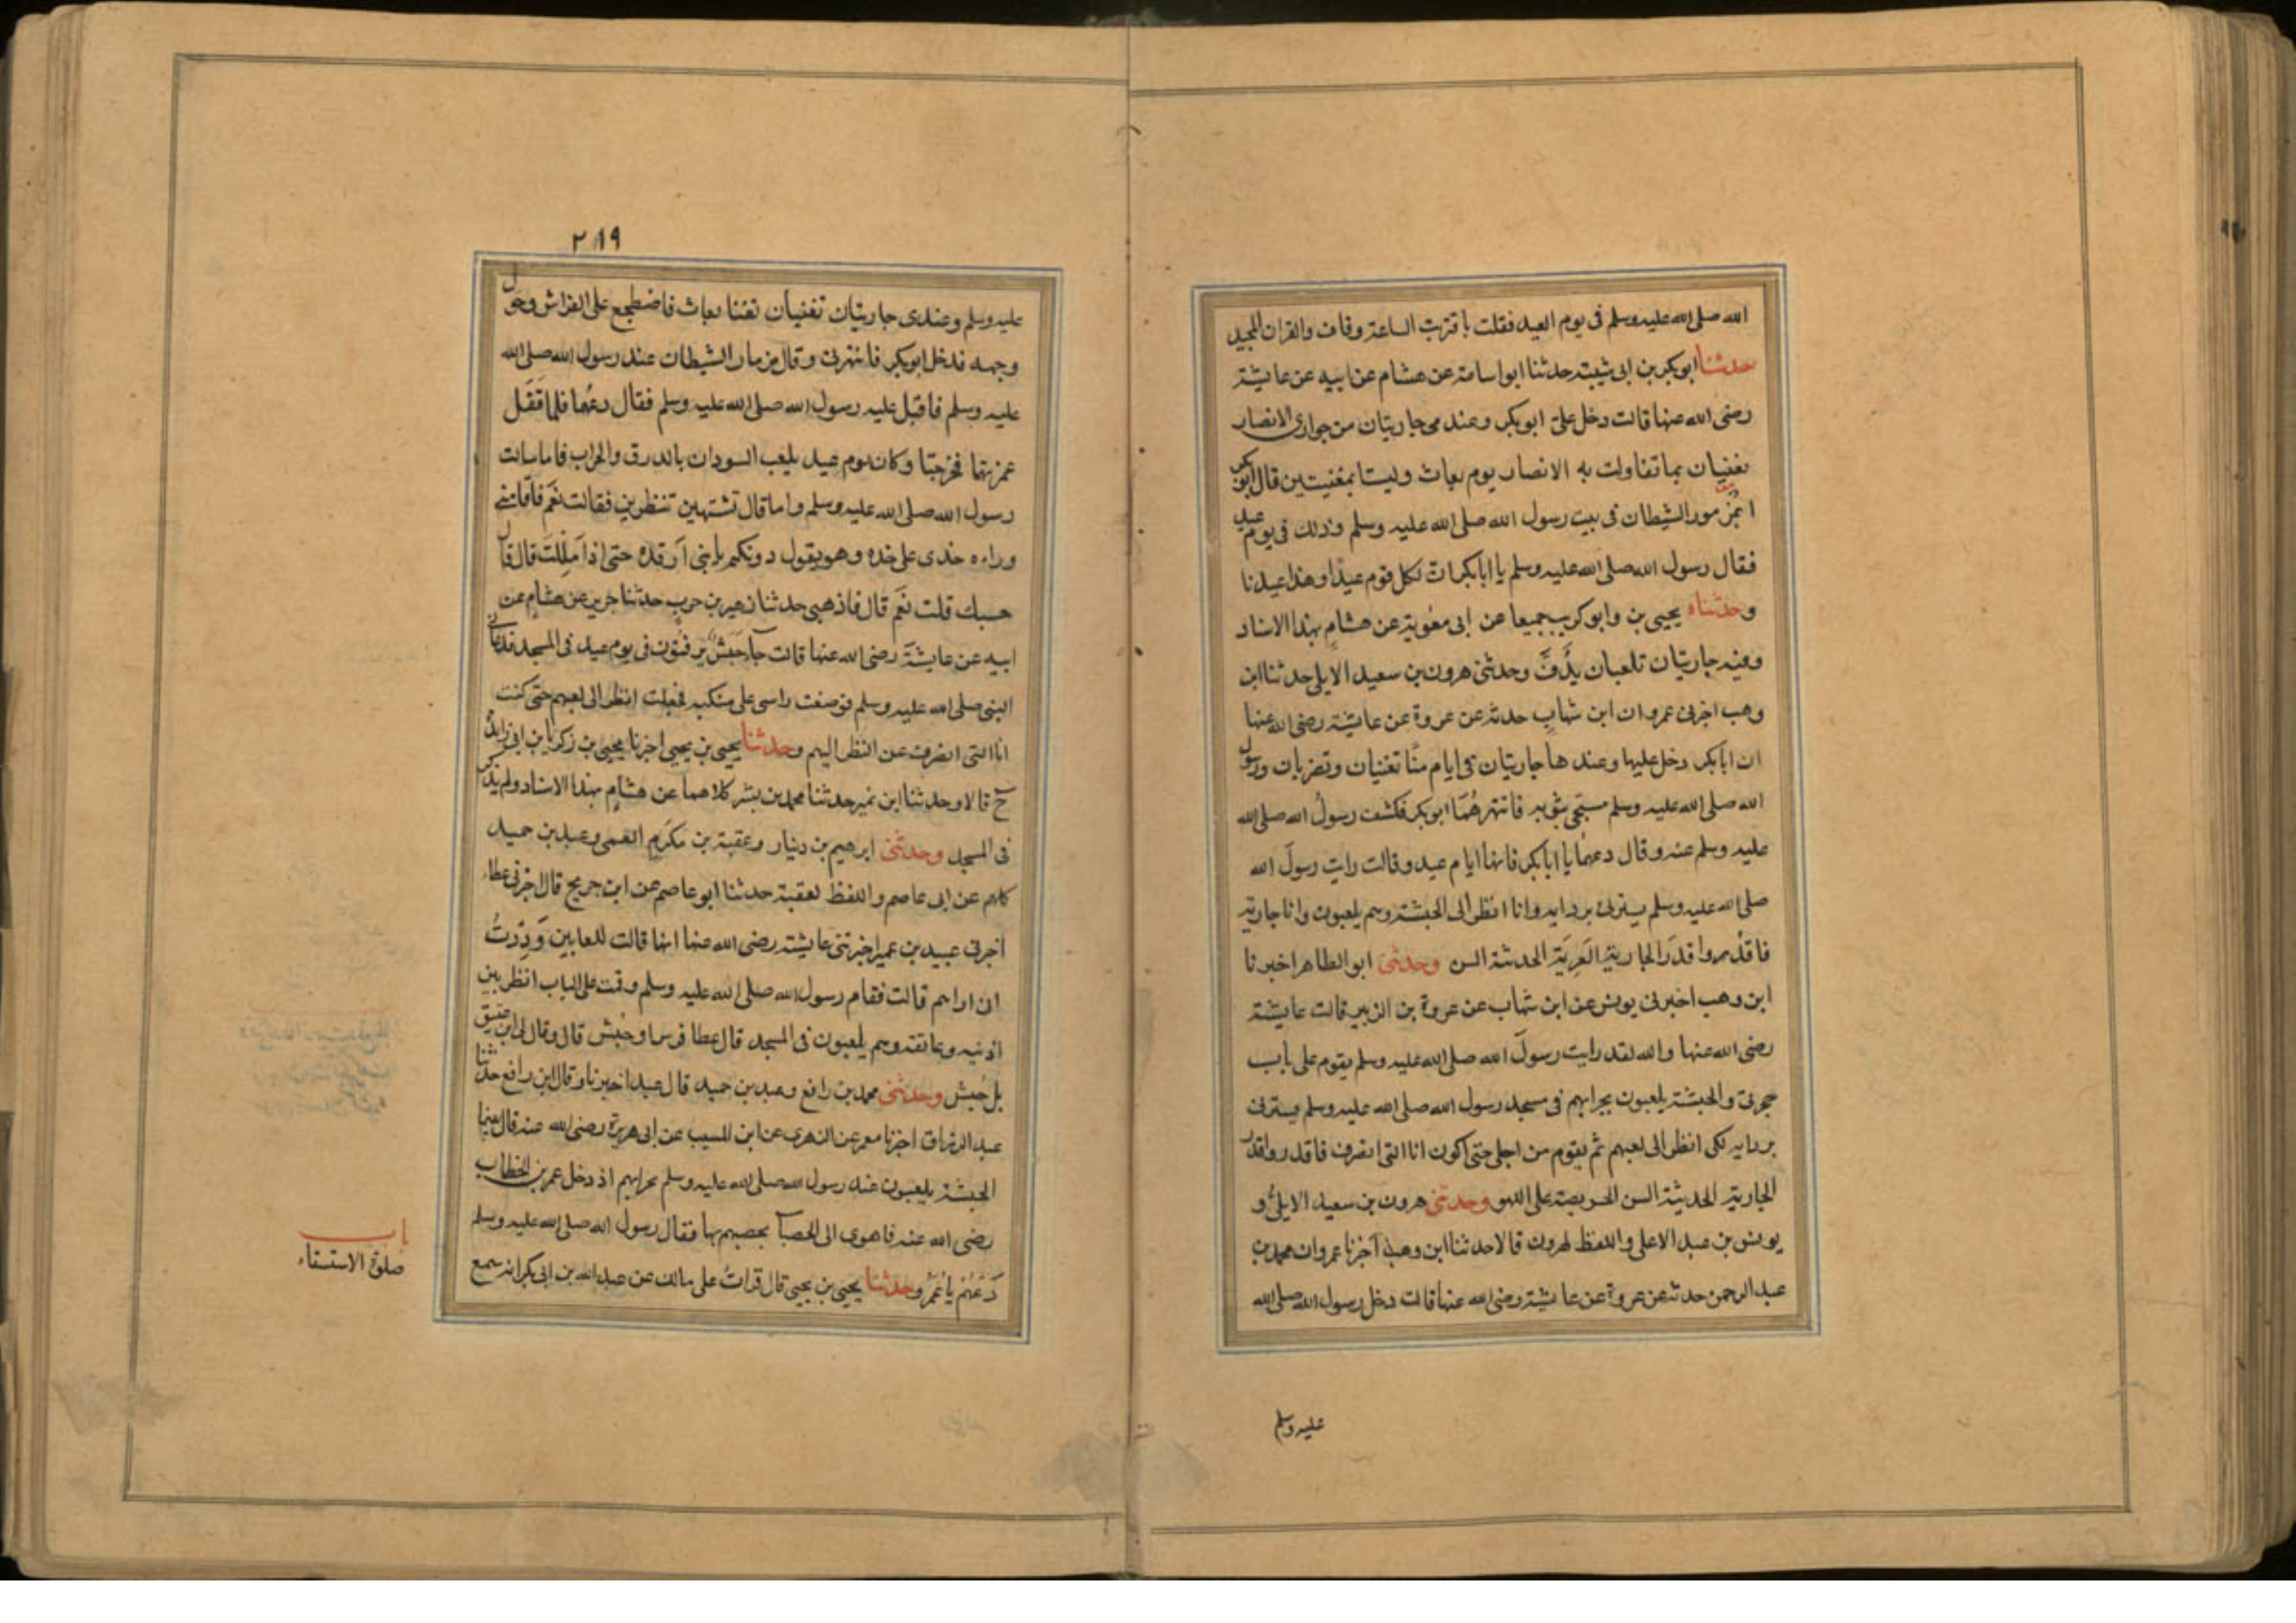 الله صلى الله عليه وسلم فى يوم العيد فقلت باقتربت الساعة وقاف والقران المجيد
حدثنا ابوبكر بن ابى شيبة حدثنا ابواسامة عن هشام عن ابيه عن عايشة
رضى الله عنها قالت دخل علىّ ابوبكر وعندى جاريتان من جوارى الانصار
تغنيان بما تقاولت به الانصار يوم بعاث وليستا بمغنيتين قال ابوبكر
ابمزمور الشيطان فى بيت رسول الله صلى الله عليه وسلم وذلك فى يوم عيد
فقال رسول الله صلى الله عليه وسلم يا ابابكر ان لكل قوم عيدًا وهذا عيدنا
وحدثناه يحيى بن وابوكريب جميعا عن ابى معوية عن هشام بهذا الاسناد
وفيه جاريتان تلعبان بدُفّ وحدثنى هرون بن سعيد الايلى حدثنا ابن
وهب اخبرنى عمرو ان ابن شهاب حدثه عن عروة عن عايشة رضى الله عنها
ان ابابكر دخل عليها وعندها جاريتان فى ايام منًا تغنيان وتضربان ورسول
الله صلى الله عليه وسلم مسجّى بثوبه فانتهرهُمَا ابوبكر فكشف رسولُ الله صلى الله
عليه وسلم عنه وقال دعهُما يا ابابكر فانها ايام عيد وقالت رايت رسولَ الله
صلى الله عليه وسلم يسترنى بردايه وانا انظر الى الحبشة وهم يلعبون وانا جارية
فاقدُروا قدَر الجاريةِ العَرِبَةِ الحدثة السن وحدثنى ابوالطاهر اخبرنا
ابن وهب اخبرنى يونس عن ابن شهاب عن عروة بن الزبير قالت عايشة
رضى الله عنها والله لقد رايت رسولَ الله صلى الله عليه وسلم يقوم على باب
حجرتى والحبشة يلعبون بحرابهم فى مسجد رسول الله صلى الله عليه وسلم يسترنى
بردايه لكى انظر الى لعبهم ثم يقوم من اجلى حتى اكون انا التى انصرف فاقدروا قدر
الجارية الحديثة السن الحريصة على اللهو وحدثنى هرون بن سعيد الايلىُّ و
يونس بن عبد الاعلى واللفظ لهرون قالا حدثنا ابن وهب اخبرنا عمرو ان محمد بن
عبد الرحمن حدثه عن عروة عن عايشة رضى الله عنها قالت دخل رسول الله صلى الله
عليه وسلم
٢١٩
عليه وسلم وعندى جاريتان تغنيان بغنا بعاث فاضطجع على الفراش وحول
وجهه فدخل ابوبكر فانتهرنى وقال مزمار الشيطان عند رسول الله صلى الله
عليه وسلم فاقبل عليه رسول الله صلى الله عليه وسلم فقال دعهُما فلما غفل
غمزتهما فخرجتا وكان يوم عيد يلعب السودان بالدرق والحراب فاما سالت
رسول الله صلى الله عليه وسلم واما قال تشتهين تنظرين فقالت نعَم فاقامنى
وراءه خدى على خده وهو يقول دونكم يا بنى ارفده حتى اذا مَلِلتُ قال قال
حسبك قلت نعَم قال فاذهبى حدثنا زهير بن حرب حدثنا جرير عن هشام عن
ابيه عن عايشةَ رضى الله عنها قالت جآ حَبَشٌ يزفنون فى يوم عيد فى المسجد فدعانى
النبى صلى الله عليه وسلم فوضعت راسى على منكبه فجعلت انظر الى لعبهم حتى كنت
انا التى انصرف عن النظر اليهم وحدثنا يحيى بن يحيى اخبرنا يحيى بن زكريا بن ابى زايدة
ح قالا وحدثنا ابن نمير حدثنا محمد بن بشر كلاهما عن هشام بهذا الاسناد ولم يذكر
فى المسجد وحدثنى ابرهيم بن دينار وعقبة بن مكرَم العمى وعبد بن حميد
كلهم عن ابى عاصم واللفظ لعقبة حدثنا ابوعاصم عن ابن جريج قال اخبرنى عطاء
اخبرنى عبيد بن عمير اخبرتنى عايشة رضى الله عنها انها قالت للعابين وَدِدتُ
انى اراهم قالت فقام رسول الله صلى الله عليه وسلم وقمت على الباب انظر بين
اذنيه وعاتقه وهم يلعبون فى المسجد قال عطا فرس او حبش قال وقال لى ابن عتيق
بل حُبش وحدثنى محمد بن رافع وعبد بن حميد قال عبد اخبرنا وقال ابن رافع حدثنا
عبد الرزاق اخبرنا معمر عن الزهرى عن ابن المسيب عن ابى هريرة رضى الله عنه قال بينما
الحبشة يلعبون عند رسول الله صلى الله عليه وسلم بحرابهم اذ دخل عمر بن الخطاب
رضى الله عنه فاهوى الى الحصبآ يحصبهم بها فقال رسول الله صلى الله عليه وسلم
دَعْهُم يا عُمَرُ وحدثنا يحيى بن يحيى قال قراتُ على مالك عن عبد الله بن ابى بكر انه سمع
باب
صلوة الاستسقاء